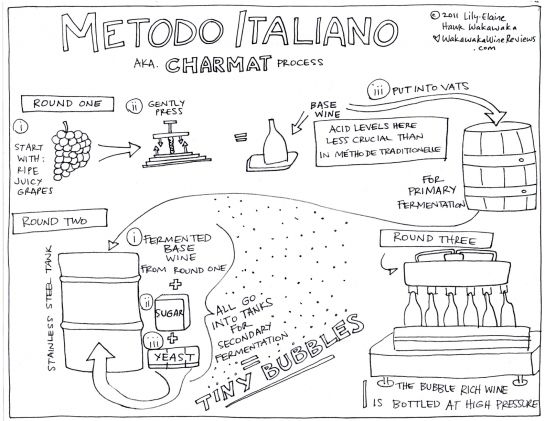 METODO ITALIANO
AKA. CHARMAT PROCESS
© 2011 Lily-Elaine
Hawk Wakawaka
WakawakaWineReviews
.com
ROUND ONE
i
START
WITH:
RIPE
JUICY
GRAPES
ii GENTLY
PRESS
=
BASE
WINE
iii PUT INTO VATS
ACID LEVELS HERE
LESS CRUCIAL THAN
IN MÉTHODE TRADITIONELLE
FOR
PRIMARY
FERMENTATION
ROUND TWO
STAINLESS STEEL TANK
i FERMENTED
BASE
WINE
FROM ROUND ONE
+
ii SUGAR
+
iii YEAST
ALL GO
INTO TANKS
FOR
SECONDARY
FERMENTATION
=
TINY BUBBLES
ROUND THREE
THE BUBBLE RICH WINE
IS BOTTLED AT HIGH PRESSURE